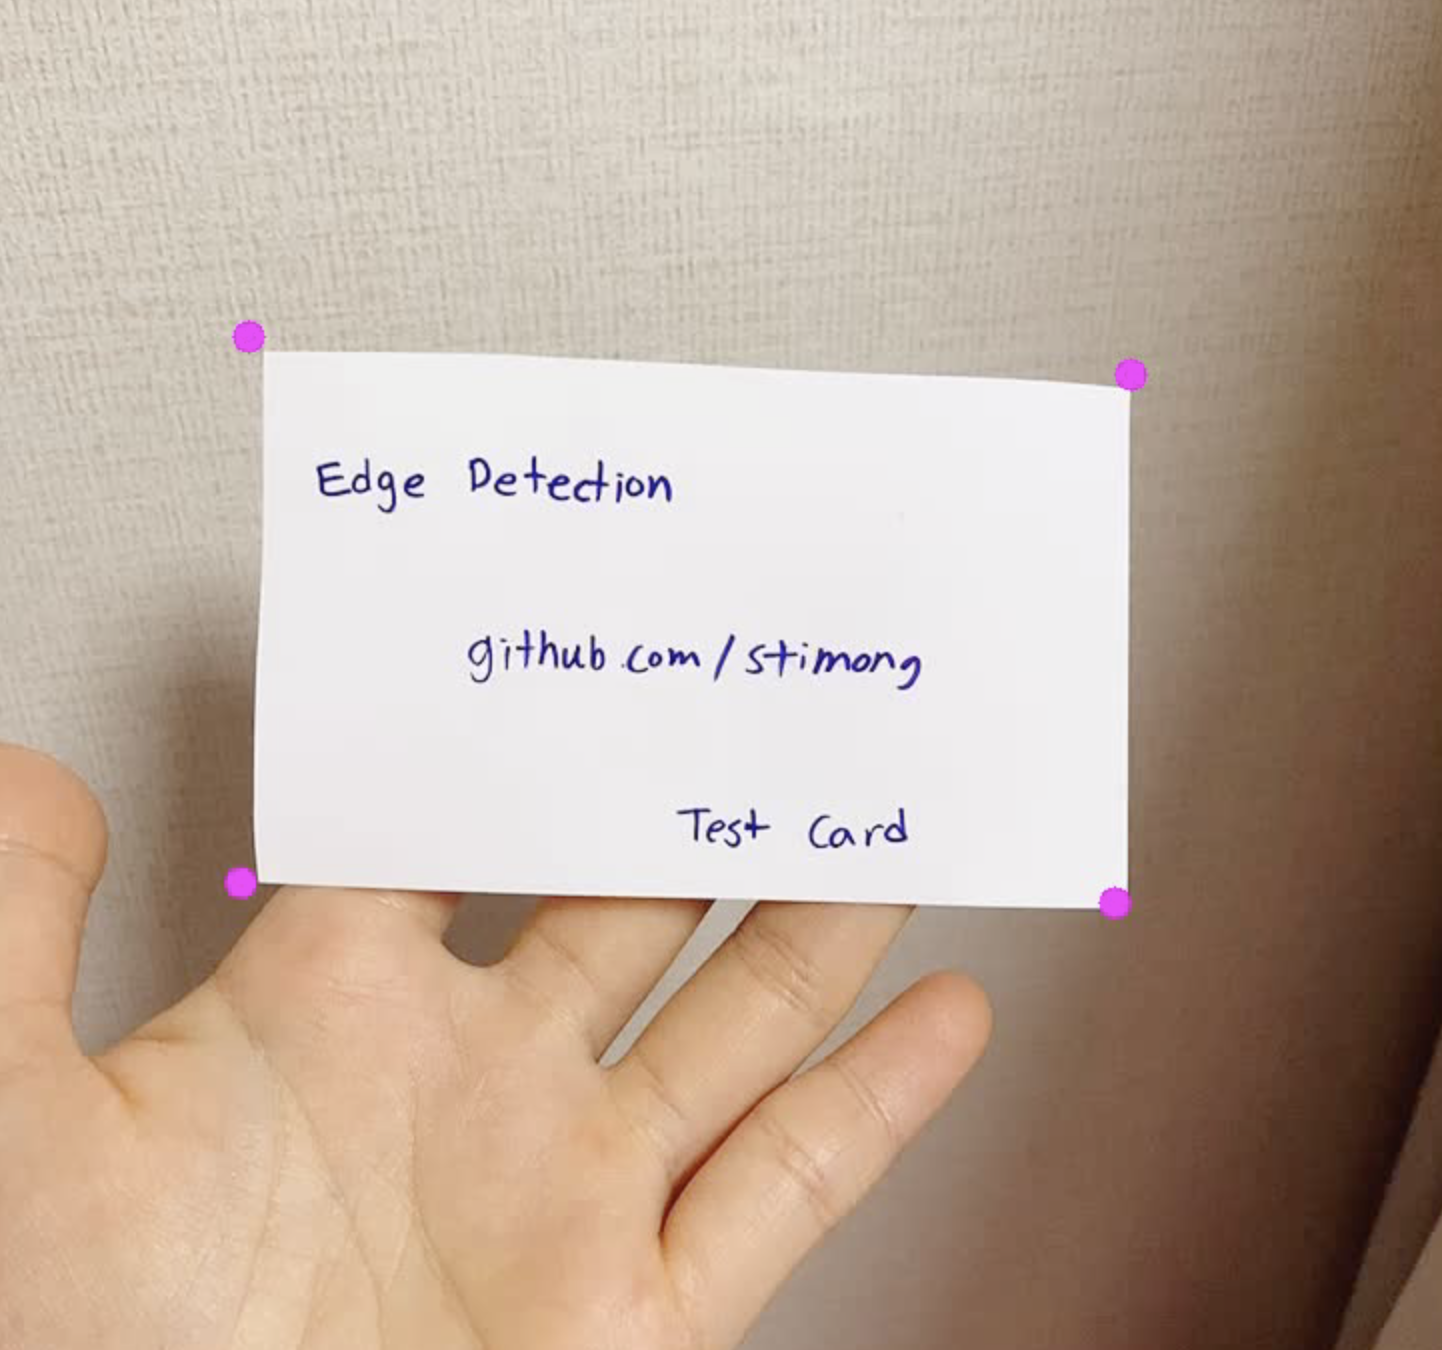 Edge Detection
github.com/stimong
Test Card